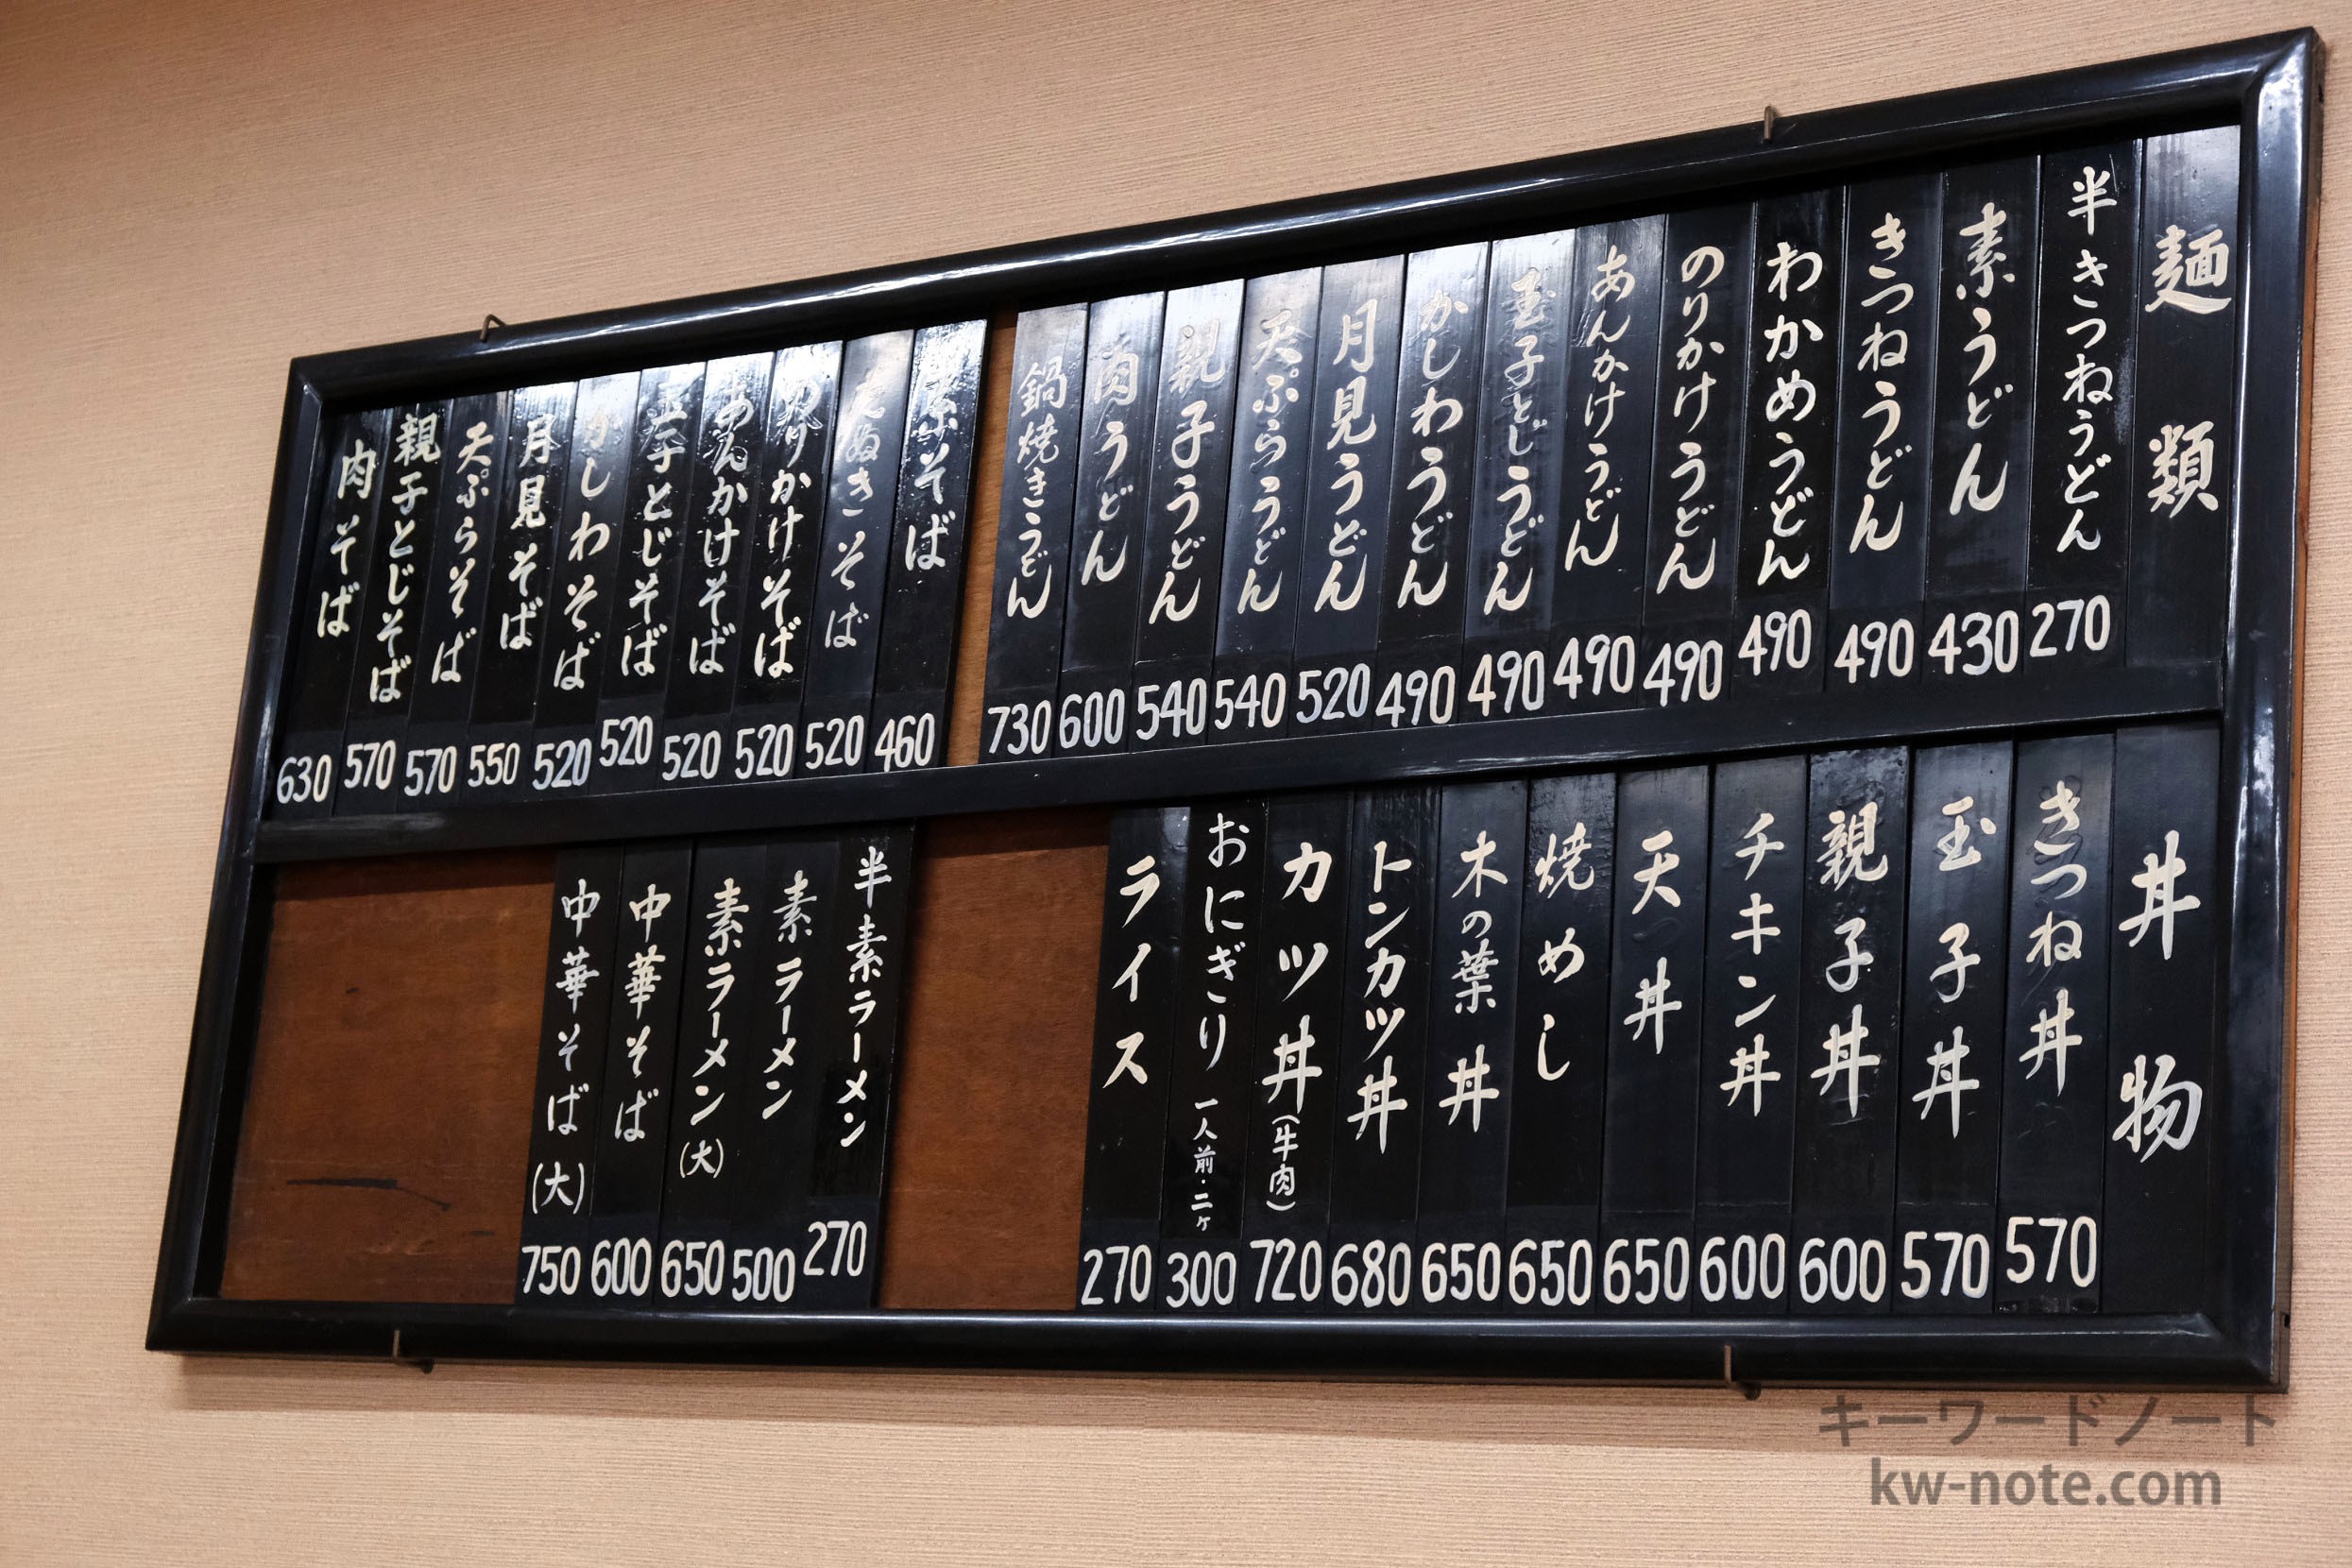 麺類
半きつねうどん 270
素うどん 430
きつねうどん 490
わかめうどん 490
のりかけうどん 490
あんかけうどん 490
玉子とじうどん 490
かしわうどん 490
月見うどん 520
天ぷらうどん 540
親子うどん 540
肉うどん 600
鍋焼きうどん 730
そば 460
たぬきそば 520
のりかけそば 520
あんかけそば 520
玉子とじそば 520
かしわそば 520
月見そば 550
天ぷらそば 570
親子とじそば 570
肉そば 630
丼物
きつね丼 570
玉子丼 570
親子丼 600
チキン丼 600
天丼 650
焼めし 650
木の葉丼 650
トンカツ丼 680
カツ丼(牛肉) 720
おにぎり 一人前・二ヶ 300
ライス 270
半素ラーメン 270
素ラーメン 500
素ラーメン(大) 650
中華そば 600
中華そば(大) 750
キーワードノート
kw-note.com